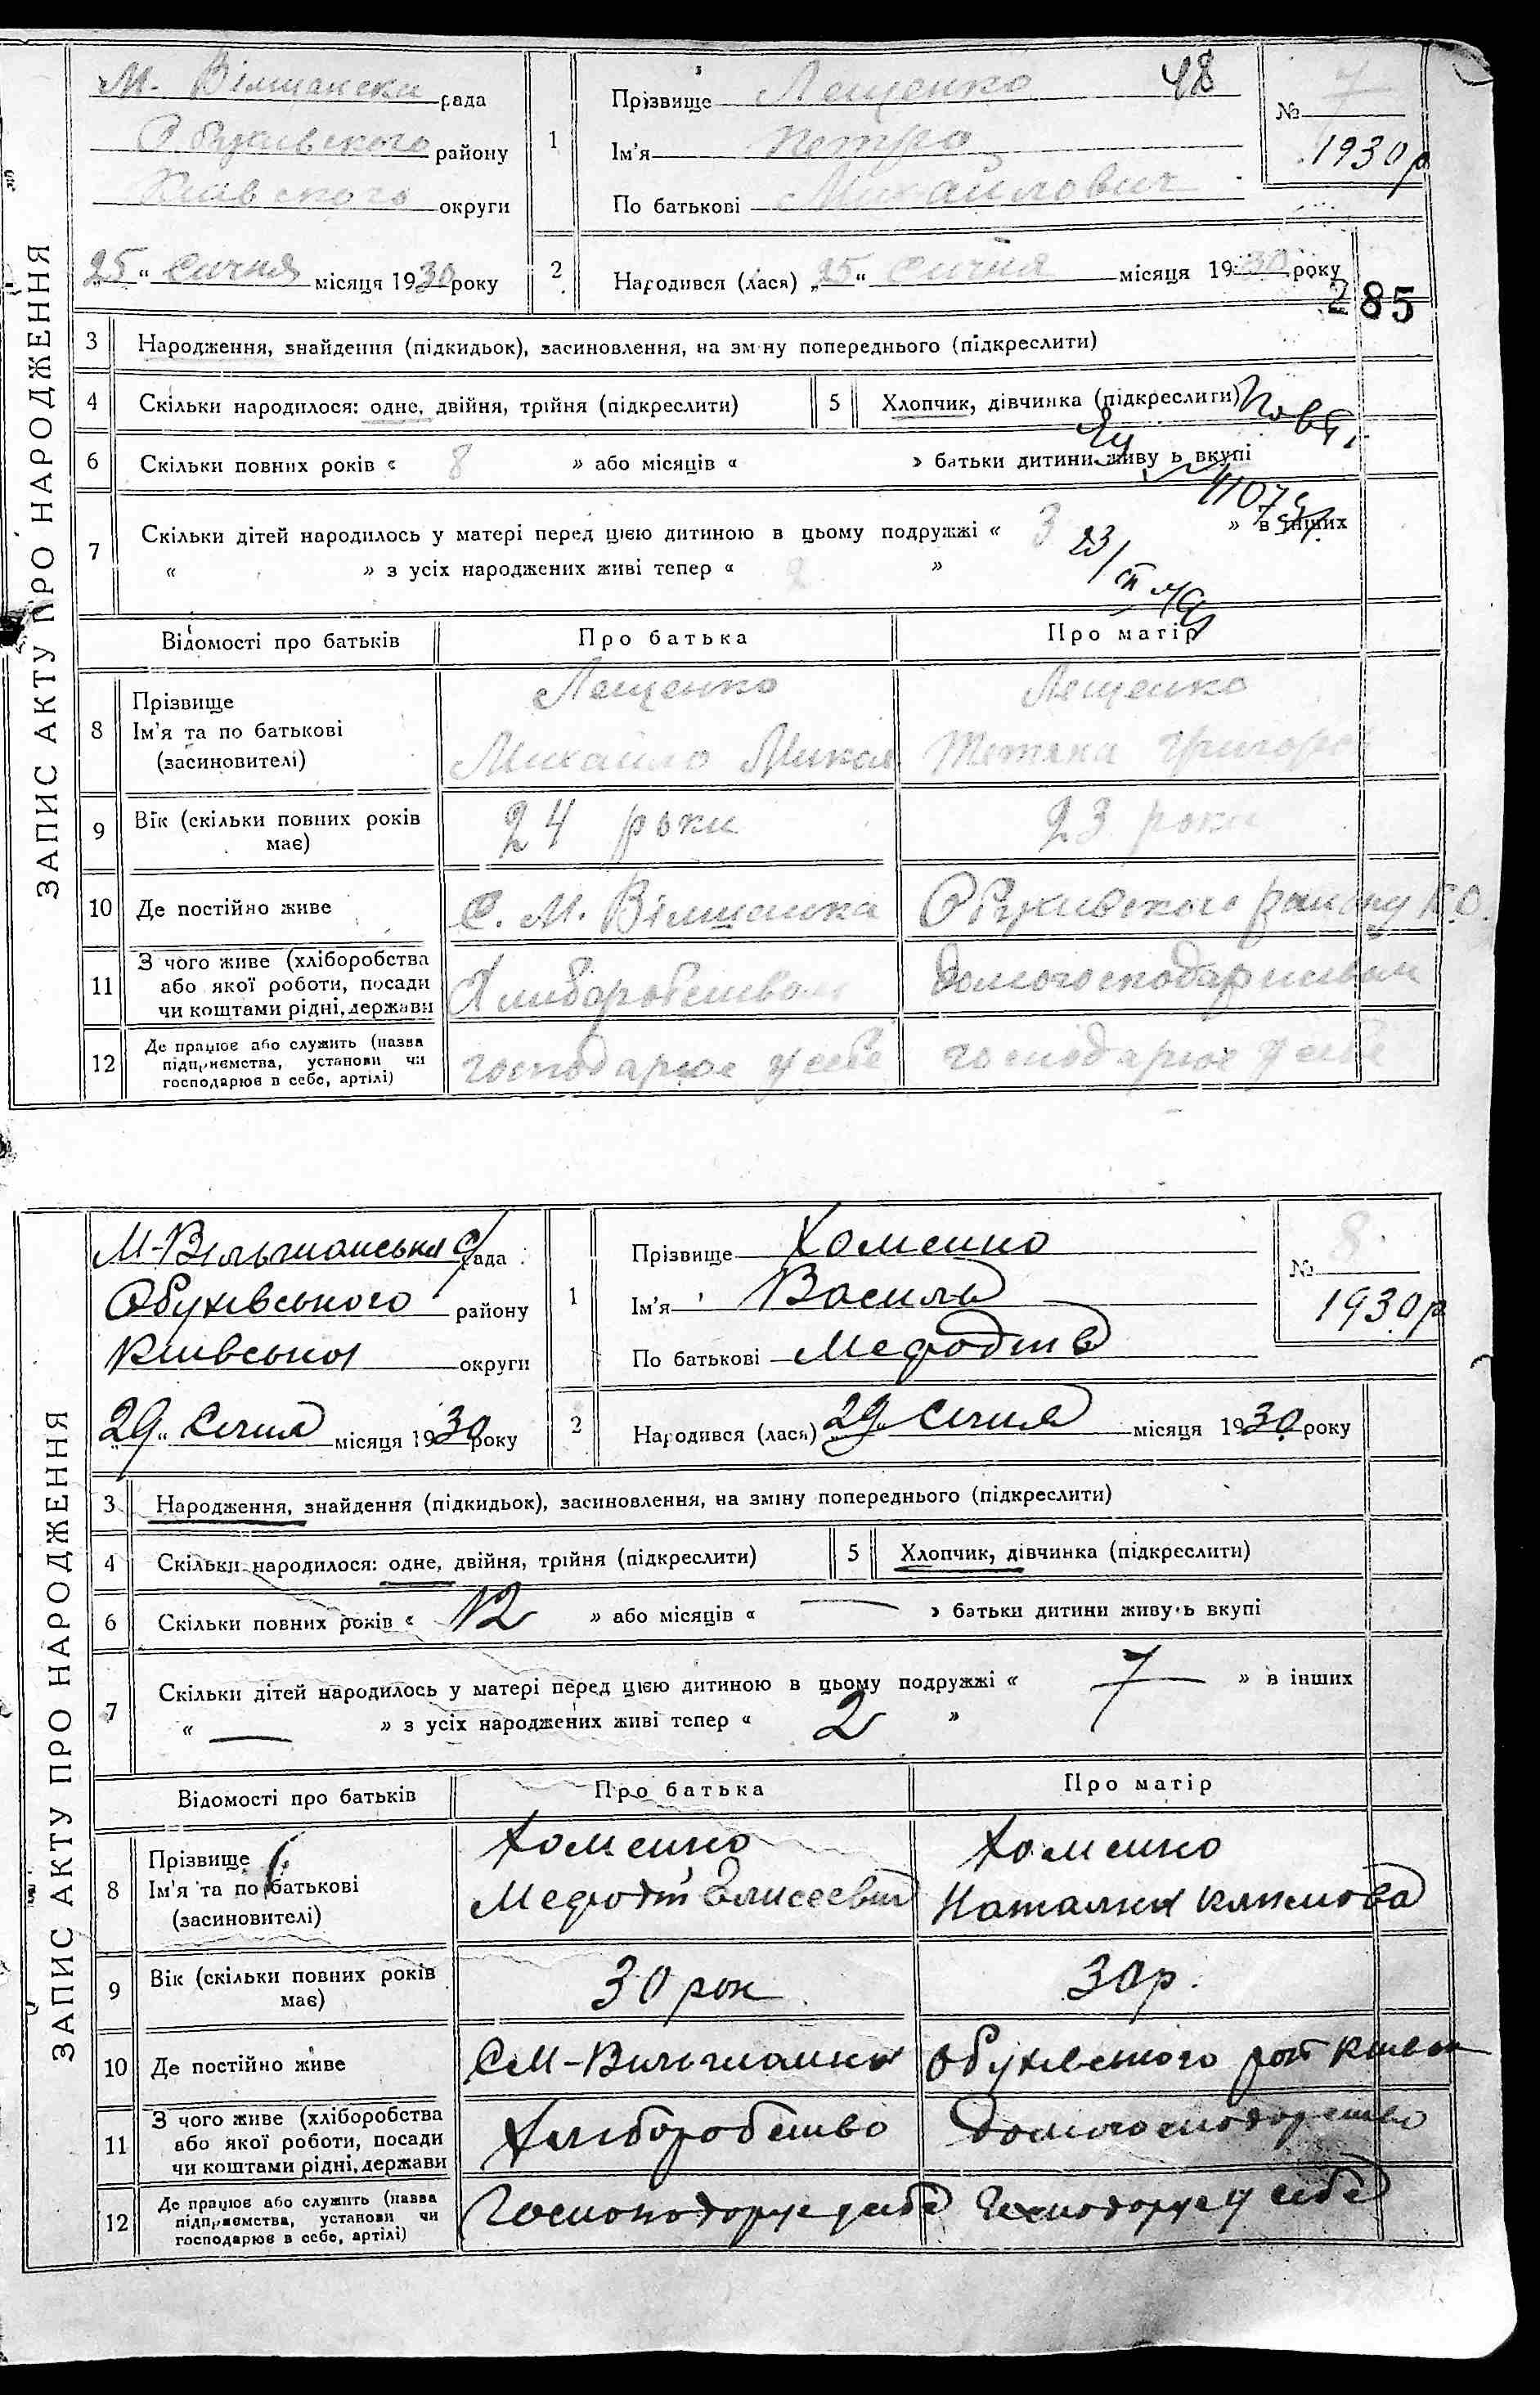 ЗАПИС АКТУ ПРО НАРОДЖЕННЯ
М. Вілшанска рада
Обухівского району
Київского округи
25 " сичня місяця 1930 року
1
Прізвище Лещенко
48
Ім'я Петро
По батькові Михайлович
№ 7
1930 р
2
Народився (лася) „25 " сичня місяця 1930 року
285
3 Народження, знайдення (підкидьок), засиновлення, на зміну попереднього (підкреслити)
4 Скільки народилося: одне, двійня, трійня (підкреслити) 5 Хлопчик, дівчинка (підкреслити)
6 Скільки повних років « 8 » або місяців « » батьки дитини живуть вкупі
7 Скільки дітей народилось у матері перед цією дитиною в цьому подружжі « 3 » в інших
« » з усіх народжених живі тепер « 2 »
23/
Відомості про батьків Про батька Про матір
8 Прізвище
Ім'я та по батькові
(засиновителі)
Лещенко
Михайло Микол
Лещенко
Тетяна Григоров
9 Вік (скільки повних років має)
24 роки 23 роки
10 Де постійно живе С. М. Вілшанка Обухивского району К.О.
11 З чого живе (хліборобства
або якої роботи, посади
чи коштами рідні, держави
Хлиборобством домогосподарством
12 Де працює або служить (назва
підприємства, установи чи
господарює в себе, артілі)
господарює у себе господарює у себе
ЗАПИС АКТУ ПРО НАРОДЖЕННЯ
М-Вільшанська с/рада
Обухівського району
Київської округи
29 " Січня місяця 1930 року
1
Прізвище Хоменко
Ім'я Василь
По батькові Мефодіїв
№ 8
1930 р
2
Народився (лася) 29 Січня місяця 1930 року
3 Народження, знайдення (підкидьок), засиновлення, на зміну попереднього (підкреслити)
4 Скільки народилося: одне, двійня, трійня (підкреслити) 5 Хлопчик, дівчинка (підкреслити)
6 Скільки повних років « 12 » або місяців « — » батьки дитини живуть вкупі
7 Скільки дітей народилось у матері перед цією дитиною в цьому подружжі « 7 » в інших
« — » з усіх народжених живі тепер « 2 »
Відомості про батьків Про батька Про матір
8 Прізвище
Ім'я та по батькові
(засиновителі)
Хоменко
Мефодій Елисеевич
Хоменко
Наталия Климова
9 Вік (скільки повних років має)
30 рок 30 р.
10 Де постійно живе С М-Вильшанка Обухівського рай Київ ок
11 З чого живе (хліборобства
або якої роботи, посади
чи коштами рідні, держави
Хліборобство домогосподорство
12 Де працює або служить (назва
підприємства, установи чи
господарює в себе, артілі)
Госпоподорує у себе Господорує у себе